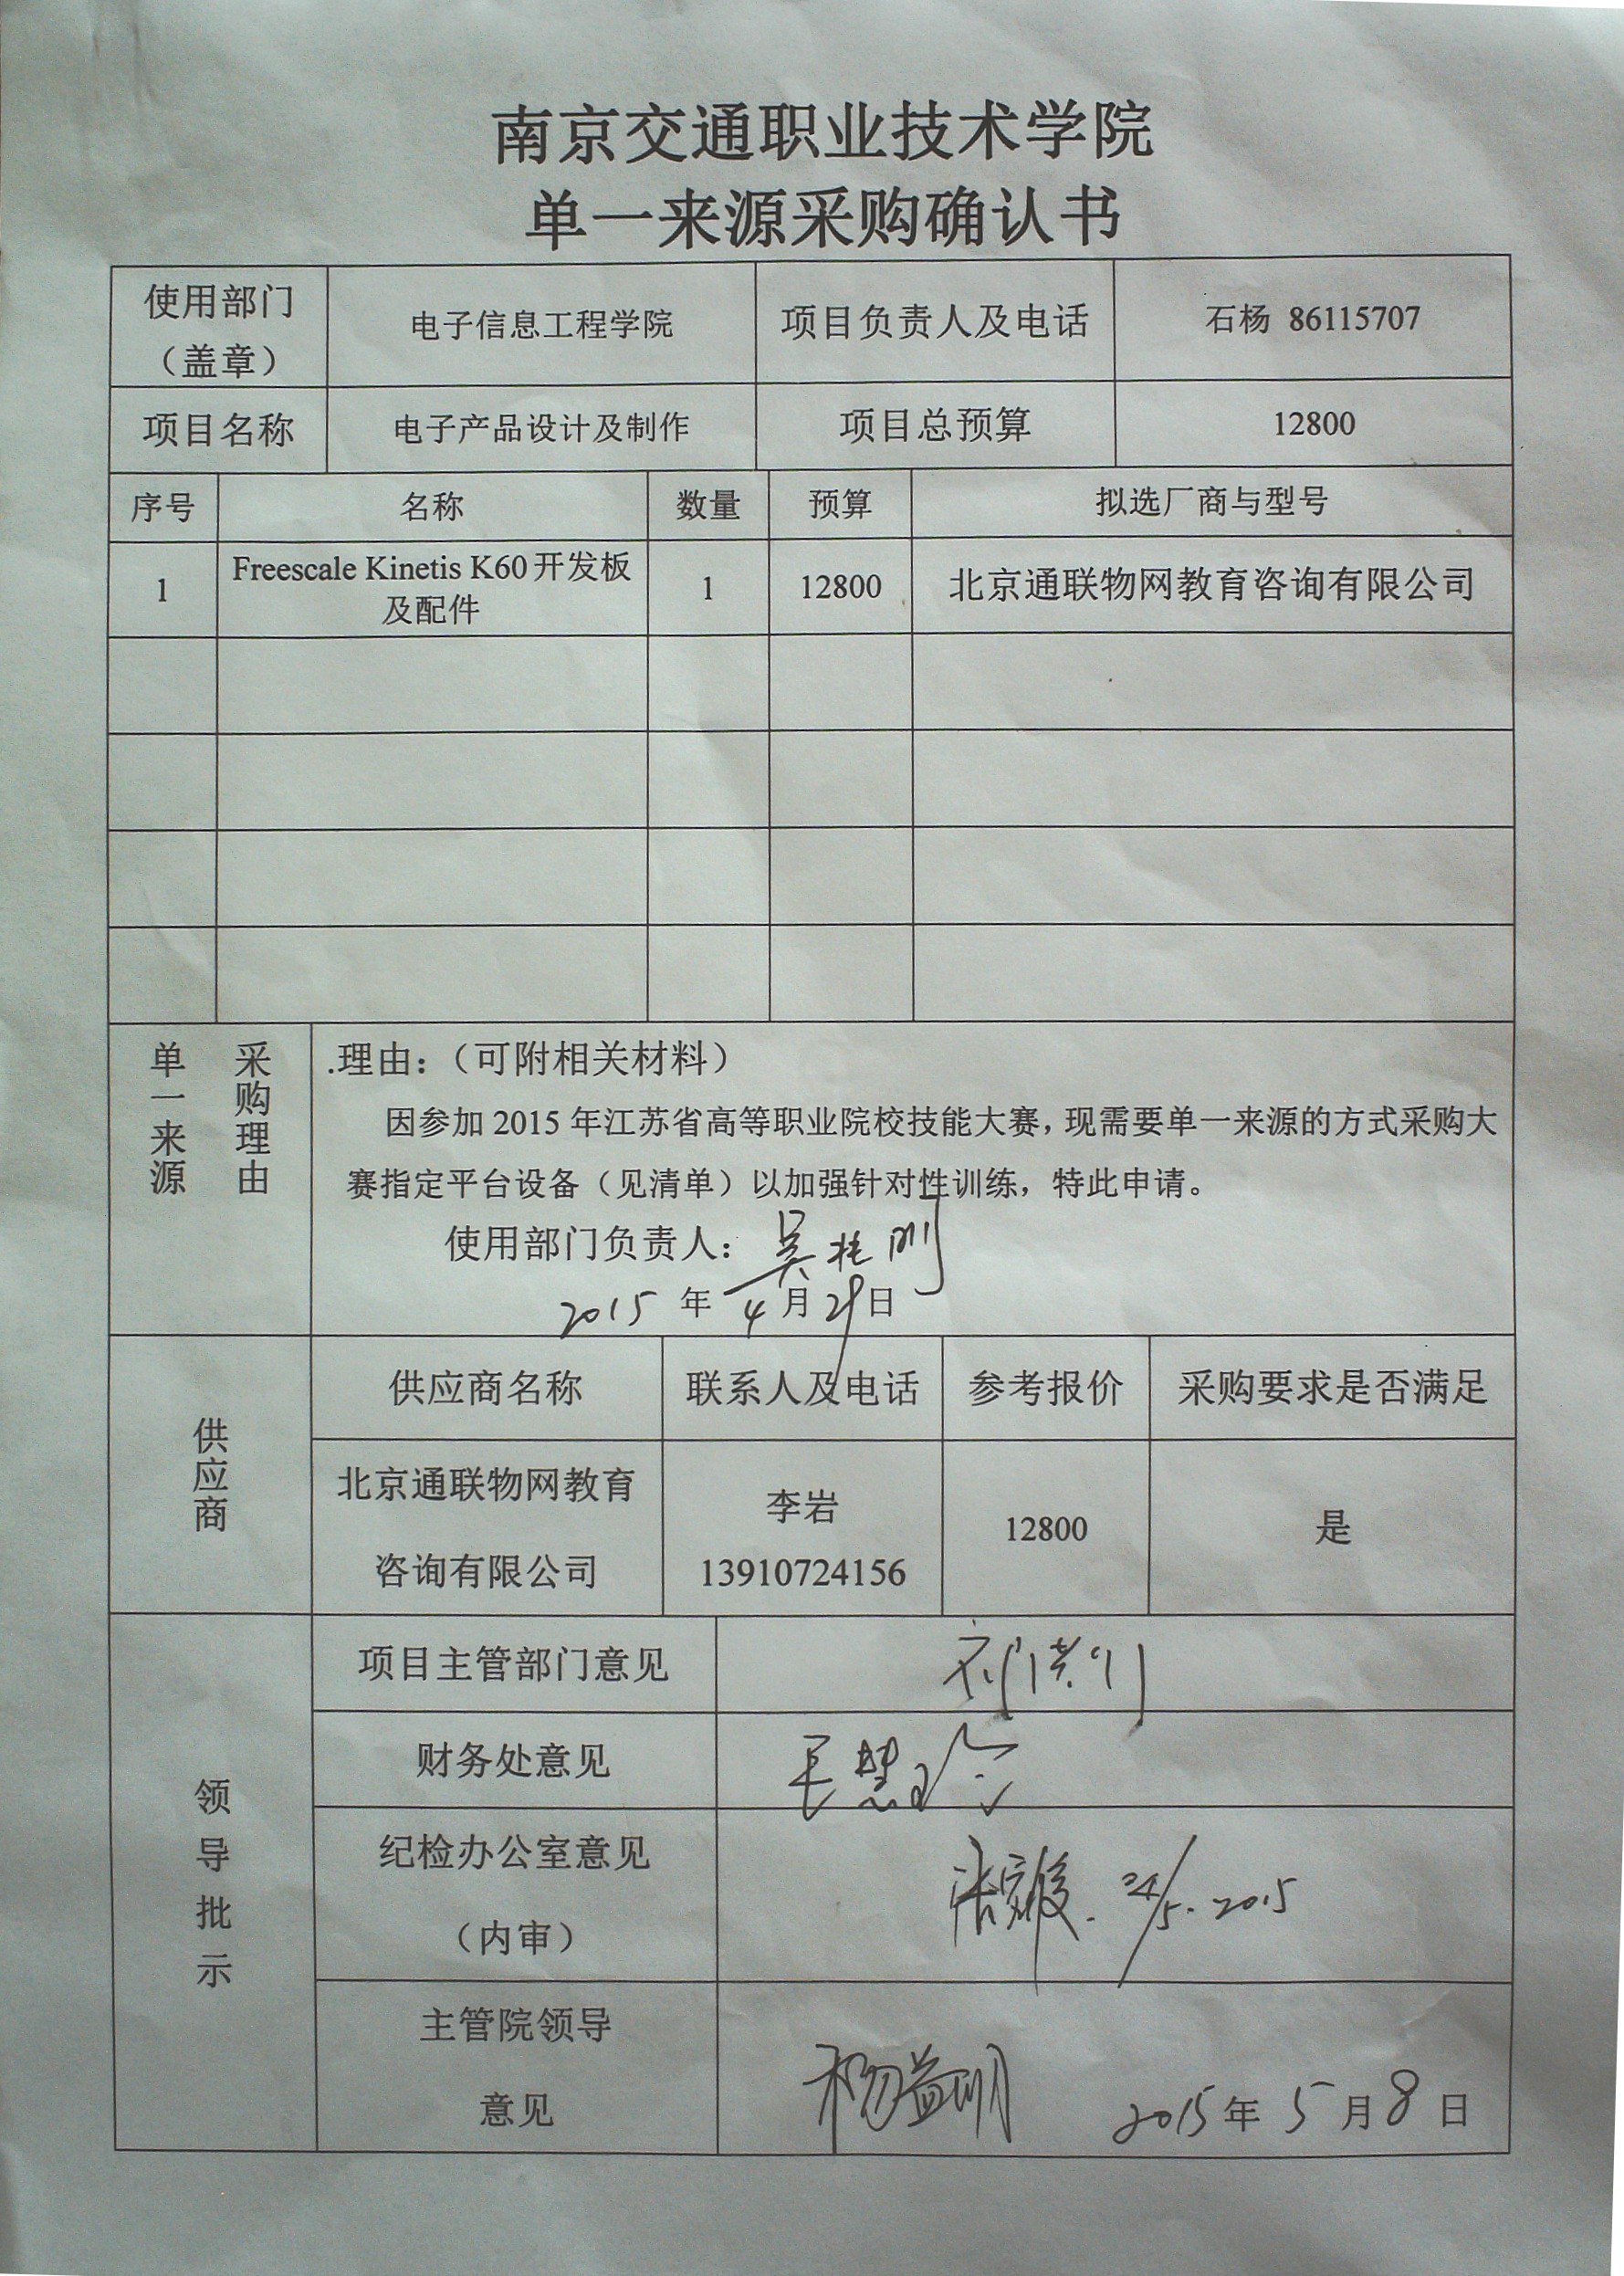 南京交通职业技术学院
单一来源采购确认书
使用部门
（盖章）
电子信息工程学院
项目负责人及电话
石杨 86115707
项目名称
电子产品设计及制作
项目总预算
12800
序号 名称 数量 预算 拟选厂商与型号
1
Freescale Kinetis K60开发板
及配件
1
12800
北京通联物网教育咨询有限公司
单一来源
采购理由
.理由：（可附相关材料）
因参加 2015 年江苏省高等职业院校技能大赛，现需要单一来源的方式采购大
赛指定平台设备（见清单）以加强针对性训练，特此申请。
使用部门负责人：
2015 年 4 月 29 日
供应商
供应商名称 联系人及电话 参考报价 采购要求是否满足
北京通联物网教育
咨询有限公司
李岩
13910724156
12800
是
领导批示
项目主管部门意见
财务处意见
纪检办公室意见
（内审）
2015
主管院领导
意见
杨益明
2015 年 5 月 8 日